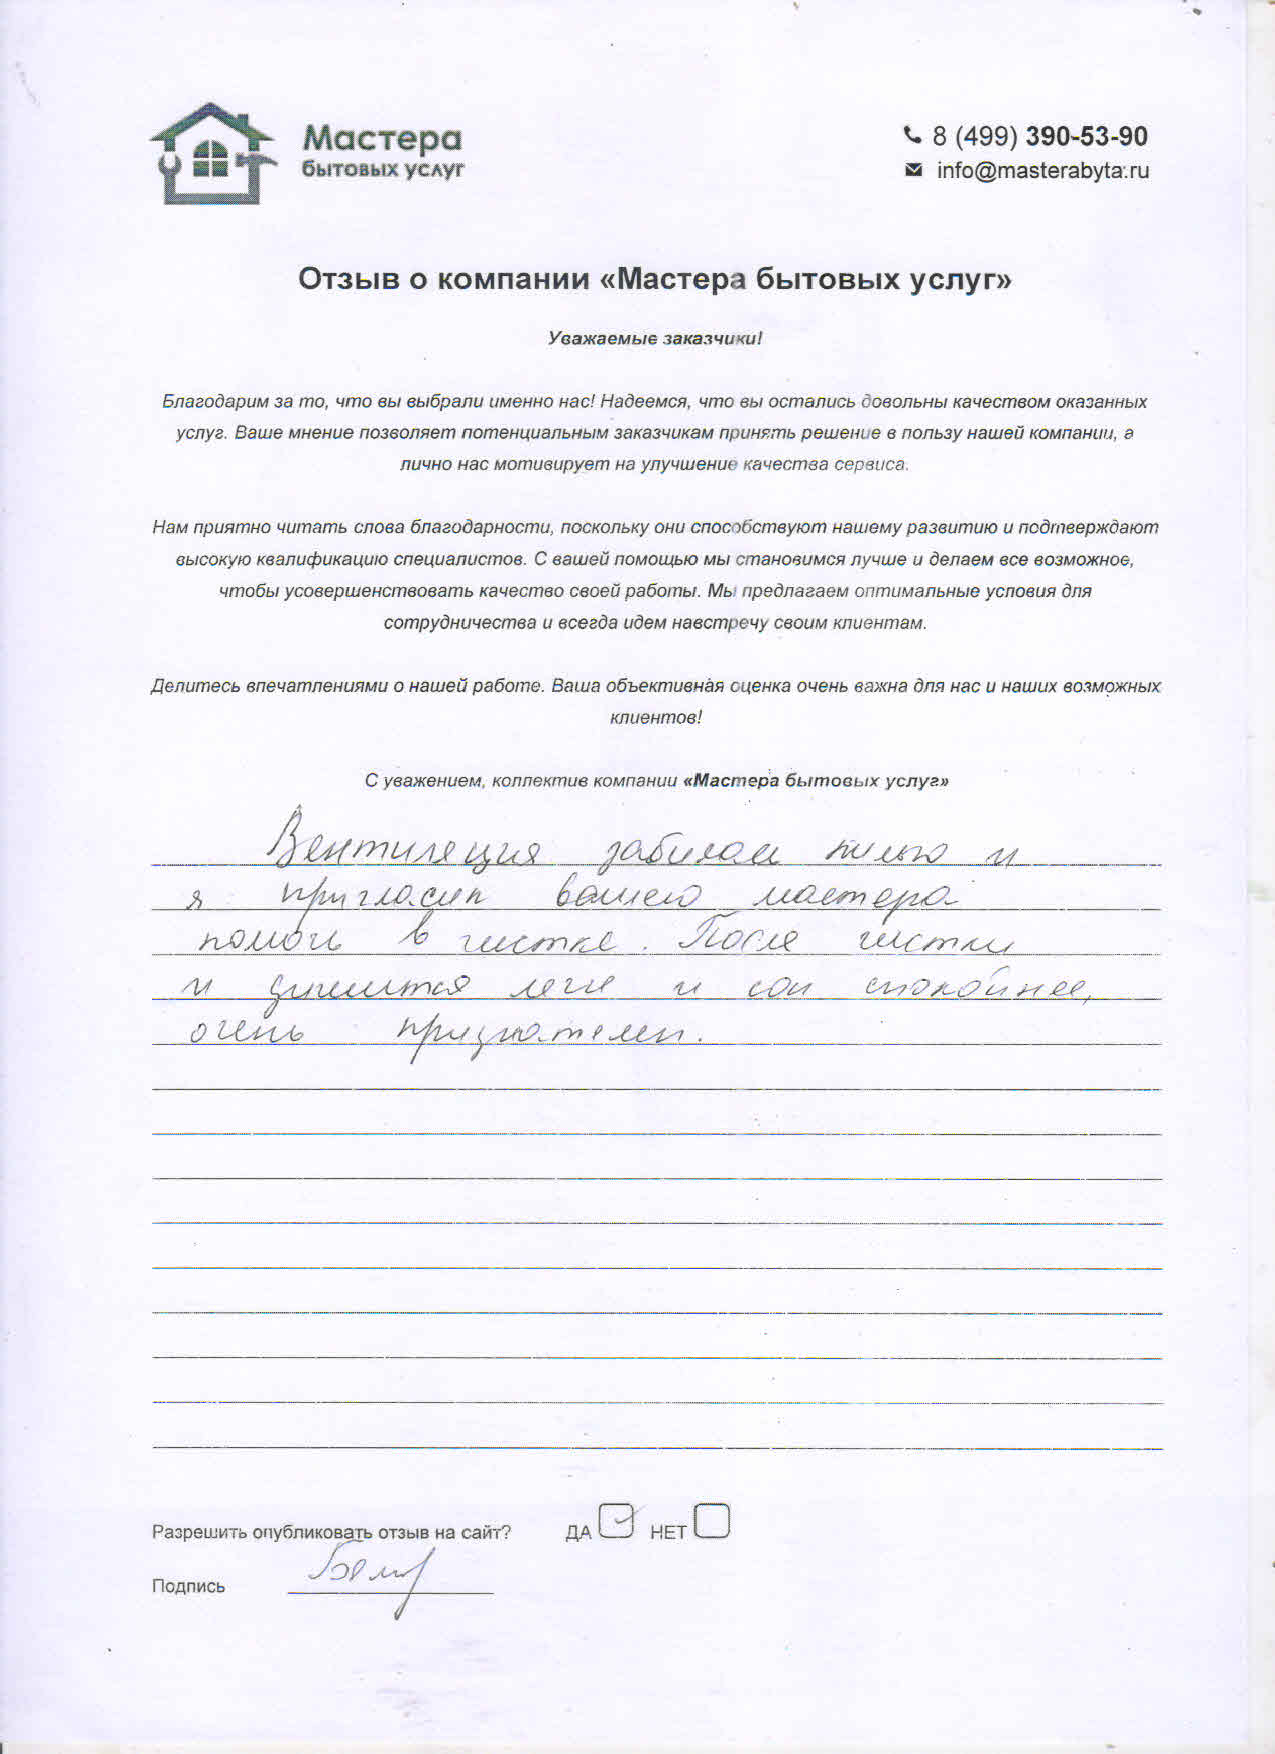 Мастера
бытовых услуг
8 (499) 390-53-90
info@masterabyta.ru
Отзыв о компании «Мастера бытовых услуг»
Уважаемые заказчики!
Благодарим за то, что вы выбрали именно нас! Надеемся, что вы остались довольны качеством оказанных
услуг. Ваше мнение позволяет потенциальным заказчикам принять решение в пользу нашей компании, а
лично нас мотивирует на улучшение качества сервиса.
Нам приятно читать слова благодарности, поскольку они способствуют нашему развитию и подтверждают
высокую квалификацию специалистов. С вашей помощью мы становимся лучше и делаем все возможное,
чтобы усовершенствовать качество своей работы. Мы предлагаем оптимальные условия для
сотрудничества и всегда идем навстречу своим клиентам.
Делитесь впечатлениями о нашей работе. Ваша объективная оценка очень важна для нас и наших возможных
клиентов!
С уважением, коллектив компании «Мастера бытовых услуг»
Вентиляция забилась пылью и
я пригласил вашего мастера
помочь в чистке. После чистки
и дышится легче и сон спокойнее,
очень признателен.
Разрешить опубликовать отзыв на сайт? ДА НЕТ
Подпись